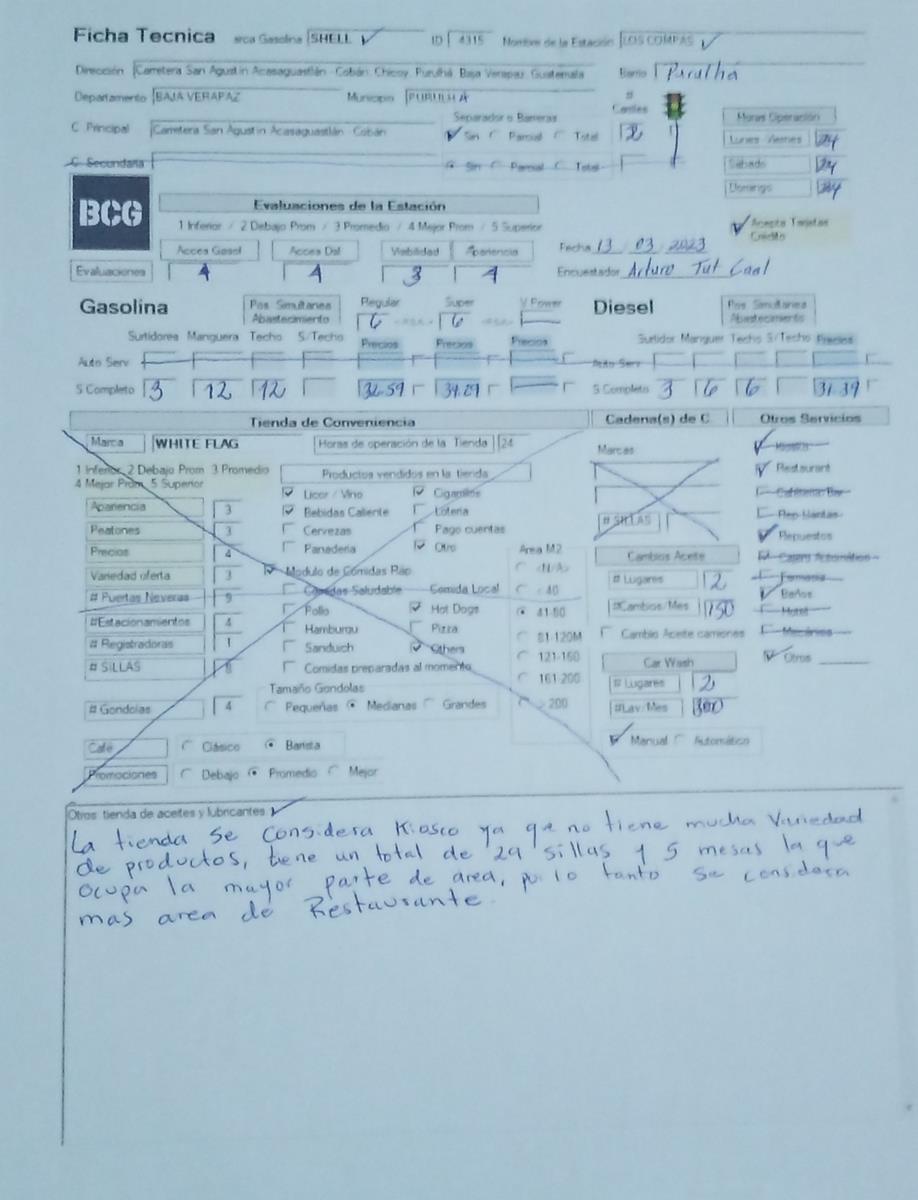 Ficha Tecnica arca Gasolina SHELL ID 4315 Nombre de la Estación LOS COMPAS
Dirección Carretera San Agustin Acasaguastlán Cobán. Chicoy, Purulhá Baja Verapaz, Guatemala Barrio Purulhá
Departamento BAJA VERAPAZ Municipio PURULHA # Carriles 2
Separador o Barreras
C Principal Carretera San Agustin Acasaguastlán Cobán Sin Parcial Total
C Secundaria Sin Parcial Total
Horas Operación
Lunes Viernes 24
Sabado 24
Domingo 24
Acepta Tarjetas Credito
BCG
Evaluaciones de la Estación
1 Inferior / 2 Debajo Prom / 3 Promedio / 4 Mejor Prom / 5 Superior
Acces Gasol Acces Dsl Visibilidad Apariencia
Evaluaciones 4 4 3 4
Fecha 13 03 2023
Encuestador Arturo Tut Caal
Gasolina Pos. Simultanea Abastecimiento Regular 6 Super 6 V Power
Surtidores Manguera Techo S/Techo Precios Precios Precios
Auto Serv
S Completo 3 12 12 32.59 34.29
Diesel Pos Simultanea Abastecimiento
Surtidor Manguer Techo S/Techo Precios
Auto Serv
S Completo 3 6 6 31.39
Tienda de Conveniencia
Marca WHITE FLAG Horas de operación de la Tienda 24
1 Inferior 2 Debajo Prom 3 Promedio
4 Mejor Prom 5 Superior
Apariencia 3
Peatones 3
Precios 4
Variedad oferta 3
# Puertas Neveras 9
#Estacionamientos 4
# Registradoras 1
# SILLAS 8
# Gondolas 4
Productos vendidos en la tienda
Licor / Vino Cigarrillos
Bebidas Caliente Loteria
Cervezas Pago cuentas
Panaderia Otro
Modulo de Comidas Rap
Comidas Saludable Comida Local
Pollo Hot Dogs
Hamburgu Pizza
Sanduich Others
Comidas preparadas al momento
Tamaño Gondolas
Pequeñas Medianas Grandes
Area M2
<N/A>
< 40
41-80
81-120M
121-160
161-200
> 200
Café Clásico Barista
Promociones Debajo Promedio Mejor
Cadena(s) de C
Marcas
# SILLAS
Cambios Aceite
# Lugares 2
#Cambios/Mes 150
Cambio Aceite camiones
Car Wash
# Lugares 2
#Lav/Mes 300
Manual Automático
Otros Servicios
Kiosco
Restaurant
Cafeteria-Bar
Rep Llantas
Repuestos
Cajero Automático
Farmacia
Baños
Hotel
Mecánico
Otros
Otros tienda de aceites y lubricantes
La tienda se considera Kiosco ya que no tiene mucha Variedad
de productos, tiene un total de 29 sillas y 5 mesas la que
ocupa la mayor parte de area, por lo tanto se considera
mas area de Restaurante.